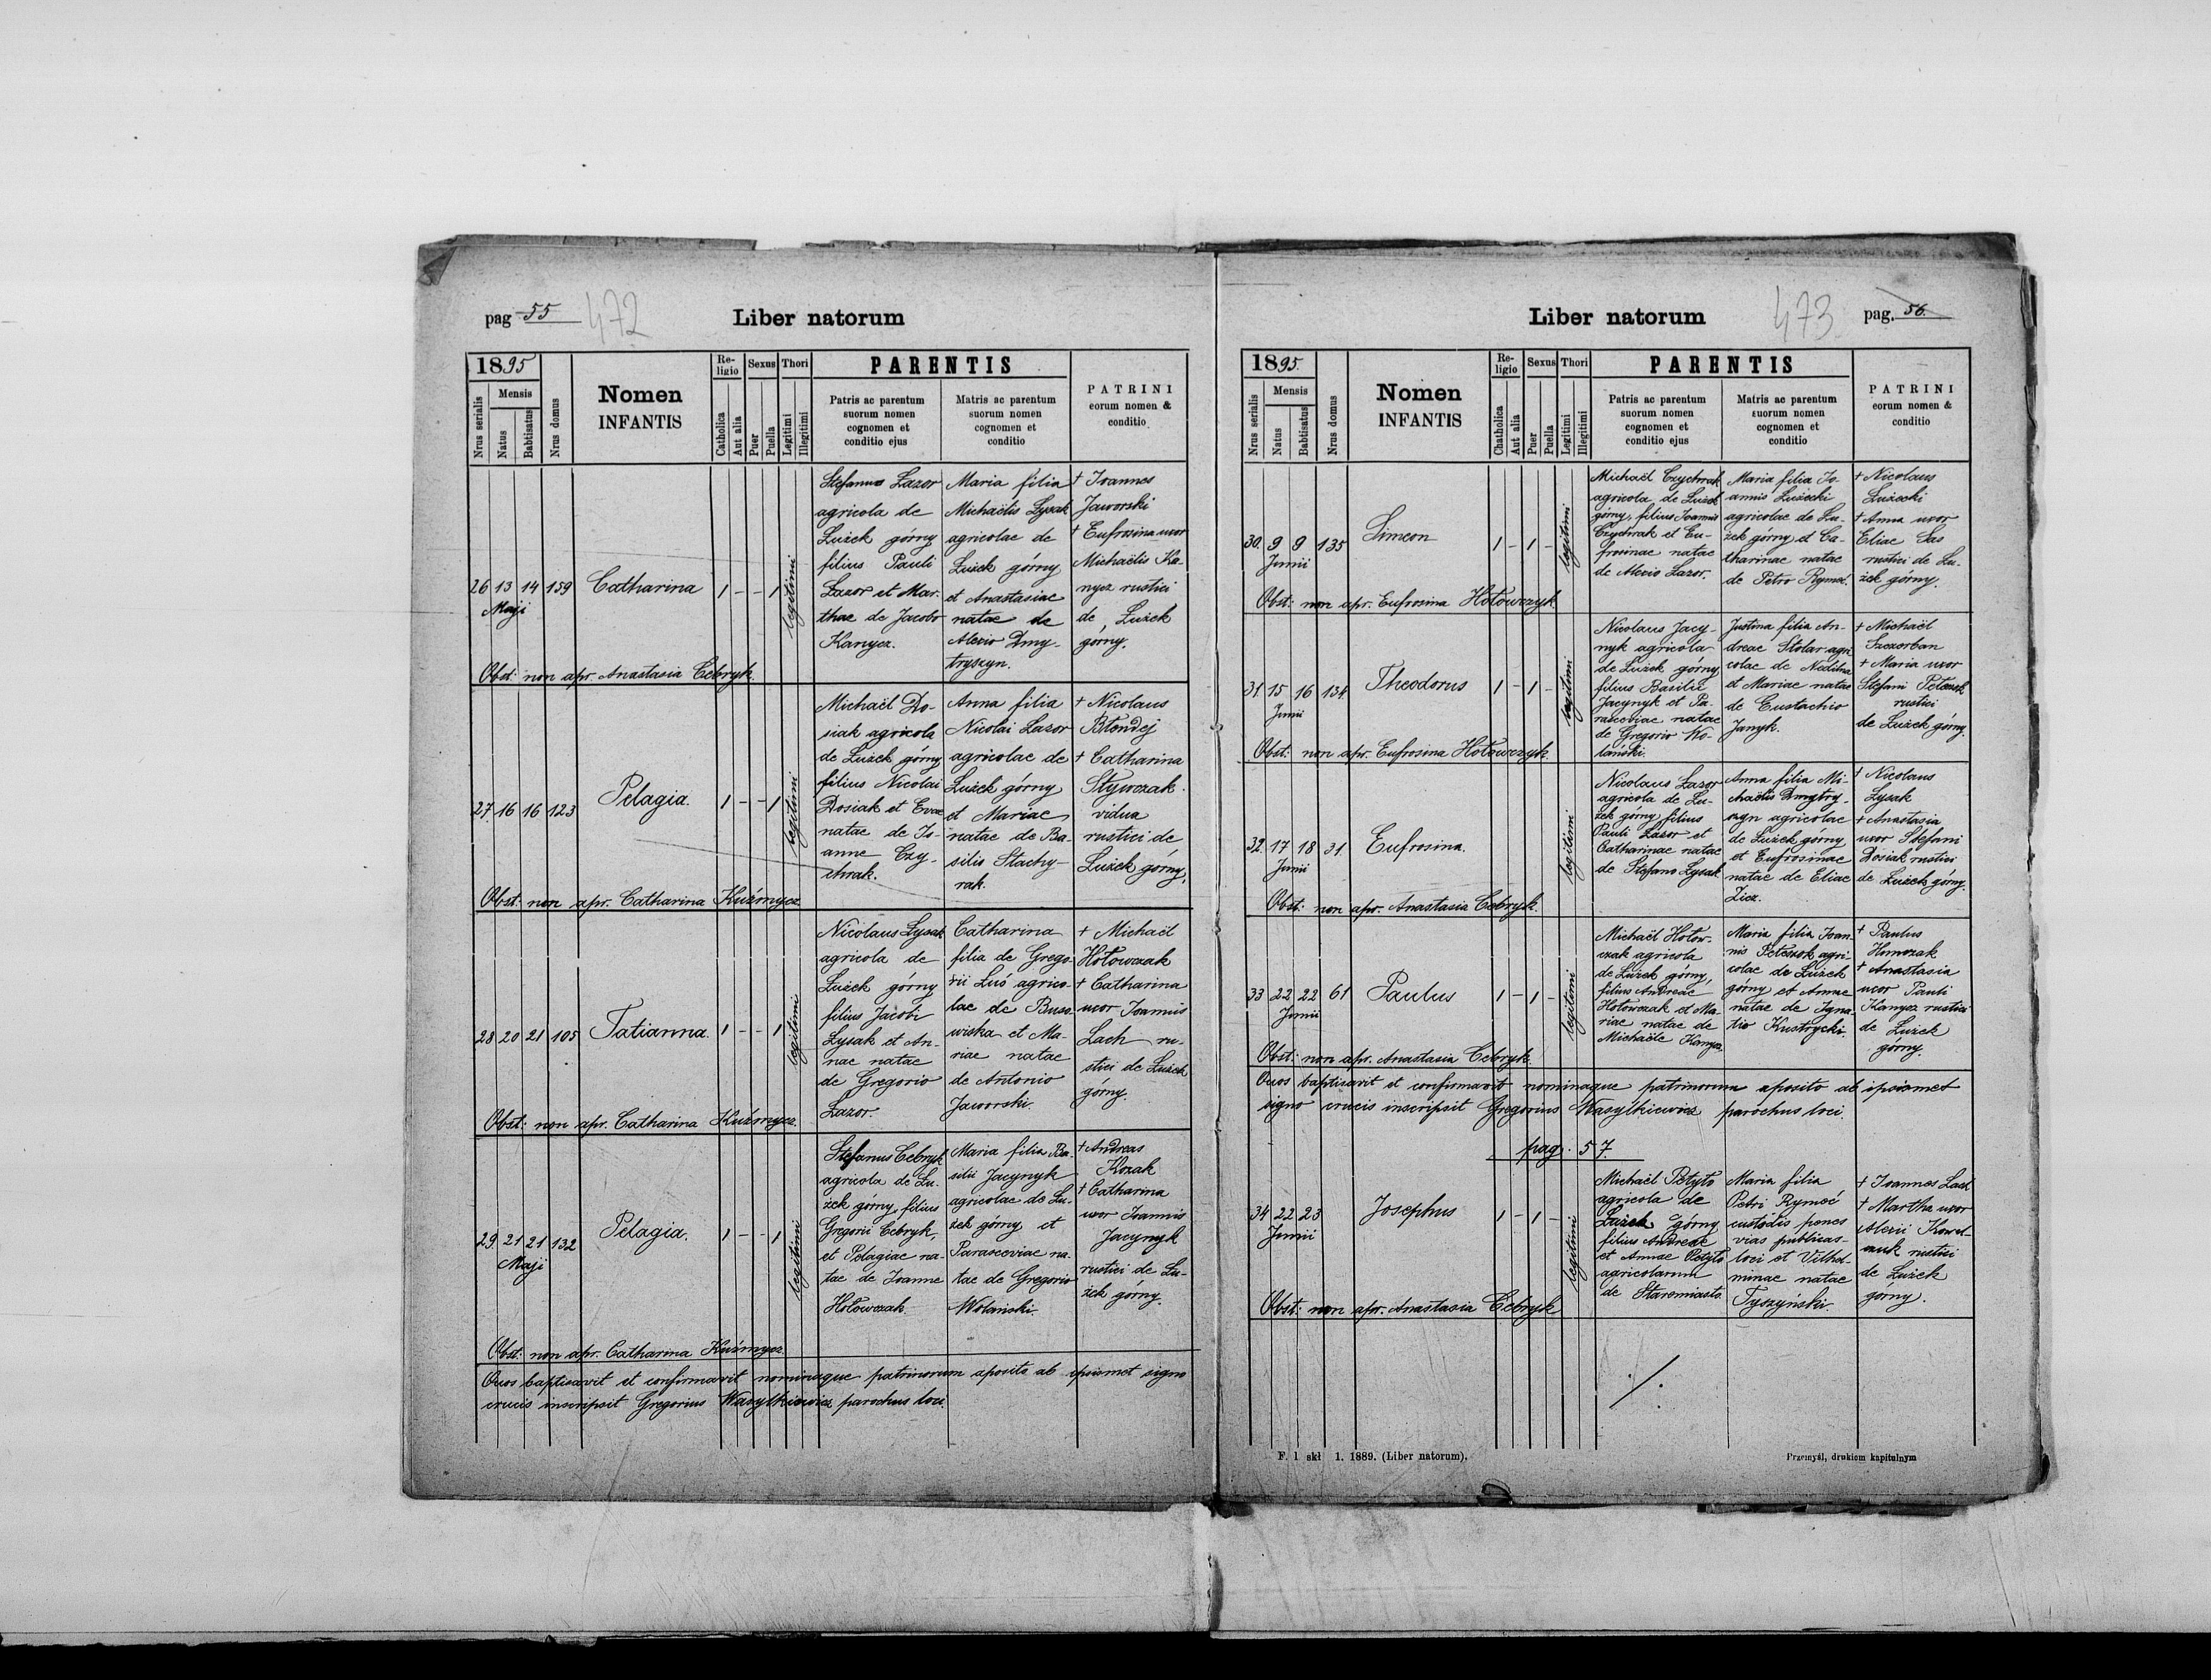 pag 55 472
Liber natorum
1895
Nrus serialis
Mensis
Natus
Babtisatus
Nrus domus
Nomen
INFANTIS
Religio
Catholica
Aut alia
Sexus
Puer
Puella
Thori
Legitimi
Illegitimi
PARENTIS
Patris ac parentum
suorum nomen
cognomen et
conditio ejus
Matris ac parentum
suorum nomen
cognomen et
conditio
PATRINI
eorum nomen &
conditio
26 13 14 159 Catharina 1 - - 1 legitimi
Maji
Stefanus Lazor
agricola de
Łużek górny
filius Pauli
Lazor et Mar-
thae de Jacobo
Kanycz.
Maria filia
Michaëlis Lysak
agricolae de
Łużek górny
et Anastasiae
natae de
Alexio Dmy-
tryszyn.
+ Joannes
Jaworski
+ Eufrosina uxor
Michaëlis Ka-
nycz rustici
de Łużek
górny.
Obst: non apr. Anastasia Cebryk.
27. 16 16 123 Pelagia. 1 - - 1 legitimi
Michaël Do-
siak agricola
de Łużek górny
filius Nicolai
Dosiak et Evae
natae de Jo-
anne Czy-
chrak.
Anna filia
Nicolai Lazor
agricolae de
Łużek górny
et Mariae
natae de Ba-
silio Stachy-
rak.
+ Nicolaus
Błondej
+ Catharina
Stywczak
vidua
rustici de
Łużek górny.
Obst: non apr. Catharina Kuźmycz
28 20 21 105 Tatianna. 1 - - 1 legitimi
Nicolaus Lysak
agricola de
Łużek górny
filius Jacobi
Lysak et An-
nae natae
de Gregorio
Lazor.
Catharina
filia de Grego-
rii Luś agrico-
lae de Buso-
wiska et Ma-
riae natae
de Antonio
Jaworski.
+ Michaël
Hołowczak
+ Catharina
uxor Joannis
Lach ru-
stici de Łużek
górny.
Obst: non apr. Catharina Kuźmycz.
29 21 21 132 Pelagia. 1 - - 1 legitimi
Maji
Stefanus Cebryk
agricola de Łu-
żek górny, filius
Gregorii Cebryk,
et Pelagiae na-
tae de Joanne
Hołowczak.
Maria filia Ba-
silii Jacynyk
agricolae de Łu-
żek górny et
Parasceviae na-
tae de Gregorio
Wolański.
+ Andreas
Kozak
+ Catharina
uxor Joannis
Jacynyk
rustici de Łu-
żek górny.
Obst: non apr. Catharina Kuźmycz
Quos baptisavit et confirmavit nominaque patrinorum aposito ab ipsismet signo
crucis inscripsit Gregorius Wasylkiewicz parochus loci.
Liber natorum
473 pag. 56.
1895.
Nrus serialis
Mensis
Natus
Babtisatus
Nrus domus
Nomen
INFANTIS
Religio
Chatholica
Aut alia
Sexus
Puer
Puella
Thori
Legitimi
Illegitimi
PARENTIS
Patris ac parentum
suorum nomen
cognomen et
conditio ejus
Matris ac parentum
suorum nomen
cognomen et
conditio
PATRINI
eorum nomen &
conditio
30. 9 9 135 Simeon 1 - 1 - legitimi
Junii
Michaël Czychrak
agricola de Łużek
górny, filius Joannis
Czychrak et Eu-
frosinae natae
de Alexio Lazor.
Maria filia Jo-
annis Łużecki
agricolae de Łu-
żek górny et Ca-
tharinae natae
de Petro
+ Nicolaus
Łużecki
+ Anna uxor
Eliae Sas
rustici de Łu-
żek górny.
Obst: non apr. Eufrosina Hołowczyk
31. 15 16 134 Theodorus 1 - 1 - legitimi
Junii
Nicolaus Jacy-
nyk agricola
de Łużek górny
filius Basilii
Jacynyk et Pa-
rasceviae natae
de Gregorio Wo-
lański.
Justina filia An-
dreae Stolar agri
colae de Nedilna
et Mariae natae
de Eustachio
Janyk.
+ Michaël
Szczorban
+ Maria uxor
Stefani
rustici
de Łużek górny.
Obst: non apr. Eufrosina Hołowczyk
32. 17 18 31. Eufrosina. legitimi
Junii
Nicolaus Lazor
agricola de Łu-
żek górny filius
Pauli Lazor et
Catharinae natae
de Stefano Lysak
Anna filia Mi-
chaëlis Dmytry-
szyn agricolae
de Łużek górny
et Eufrosinae
natae de Eliae
Zicz.
+ Nicolaus
Lysak
+ Anastasia
uxor Stefani
Dosiak rustici
de Łużek górny.
Obst: non apr. Anastasia Cebryk.
33 22 22 61 Paulus 1 - 1 - legitimi
Junii
Michaël Hołow-
czak agricola
de Łużek górny,
filius Andreae
Hołowczak et Ma-
riae natae de
Michaële Kanycz
Maria filia Joan-
nis agri-
colae de Łużek
górny et Annae
natae de Igna-
tio Kustrycki.
+ Paulus
+ Anastasia
uxor Pauli
Kanycz rustici
de Łużek
górny.
Obst: non apr. Anastasia Cebryk
Quos baptisavit et confirmavit nominaque patrinorum aposito ab ipsismet
signo crucis inscripsit Gregorius Wasylkiewicz parochus loci.
pag. 57.
34 22 23 Josephus 1 - 1 - legitimi
Junii
Michaël Petyto
agricola de
Łużek górny
filius Andreae
et Annae Petyto
agricolarum
de Staremiasto.
Maria filia
Petri Rymeć
custodis penes
vias publicas
loci et Vilhel-
minae natae
Tyszyński.
+ Joannes Lach
+ Martha uxor
Alexii Kowal-
czuk rustici
de Łużek
górny.
Obst: non apr. Anastasia Cebryk
./.
F. 1 skł 1. 1889. (Liber natorum).
Przemyśl, drukiem kapitulnym